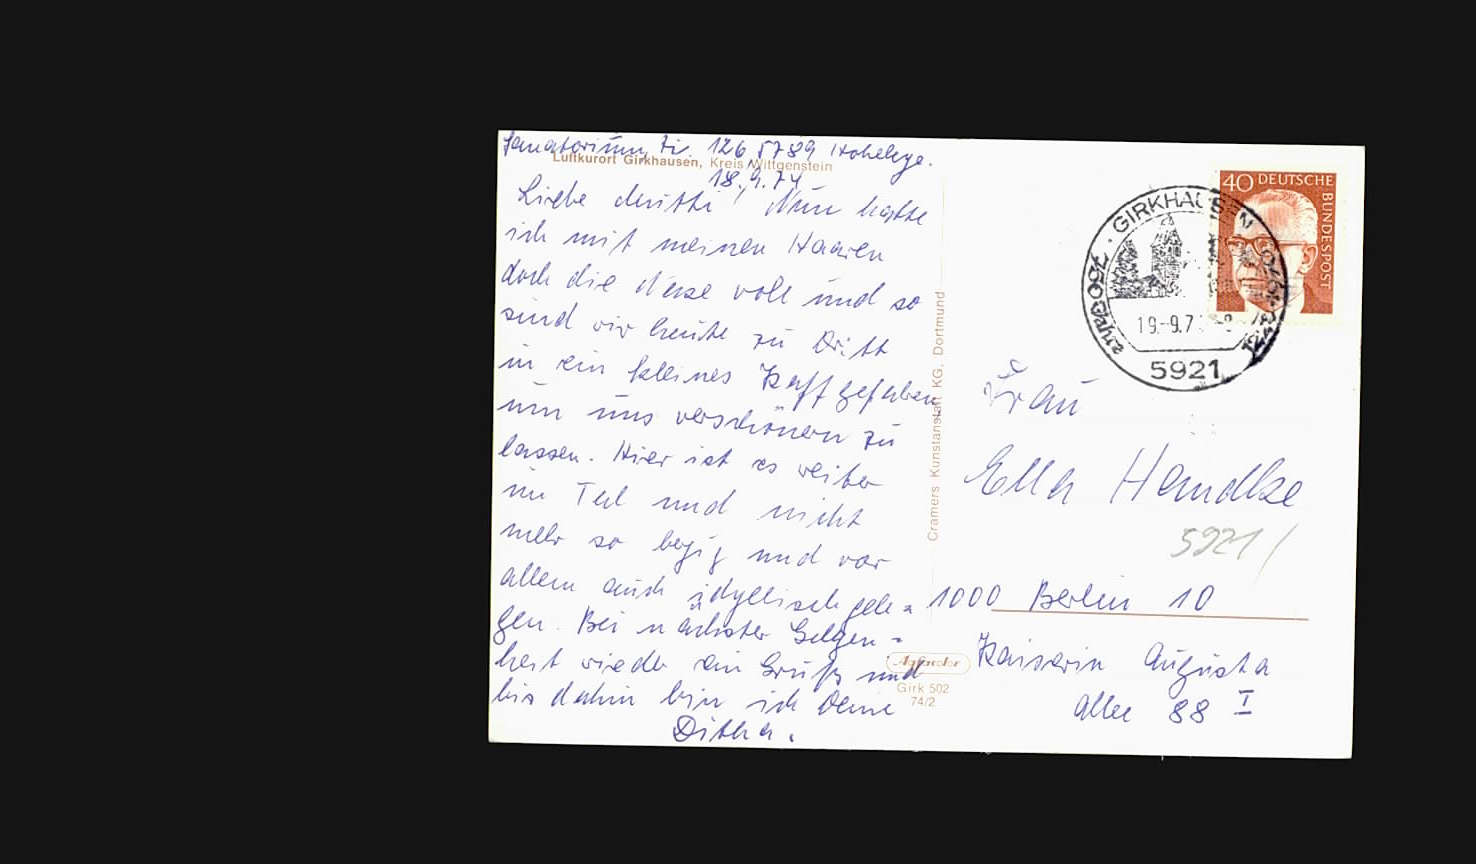 Sanatorium, Zi. 126 5789 Hoheleye.
Luftkurort Girkhausen, Kreis Wittgenstein
18.9.74
Liebe Mutti! Nun hatte
ich mit meinen Haaren
doch die Nase voll und so
sind wir heute zu Dritt
in ein kleines Kaff gefahren
um uns verschönern zu
lassen. Hier ist es weiter
im Tal und nicht
mehr so bergig und vor
allem auch idyllisch gele=
gen. Bei nächster Gelegen=
heit wieder ein Gruß und
bis dahin bin ich Deine
Ditha.
Cramers Kunstanstalt KG, Dortmund
Girk 502
74/2
40 DEUTSCHE
BUNDESPOST
GIRKHAUSEN
750 Jahre
19.-9.7
5921
Frau
Ella Handke
5921/
1000 Berlin 10
Kaiserin Augusta
Allee 88 I